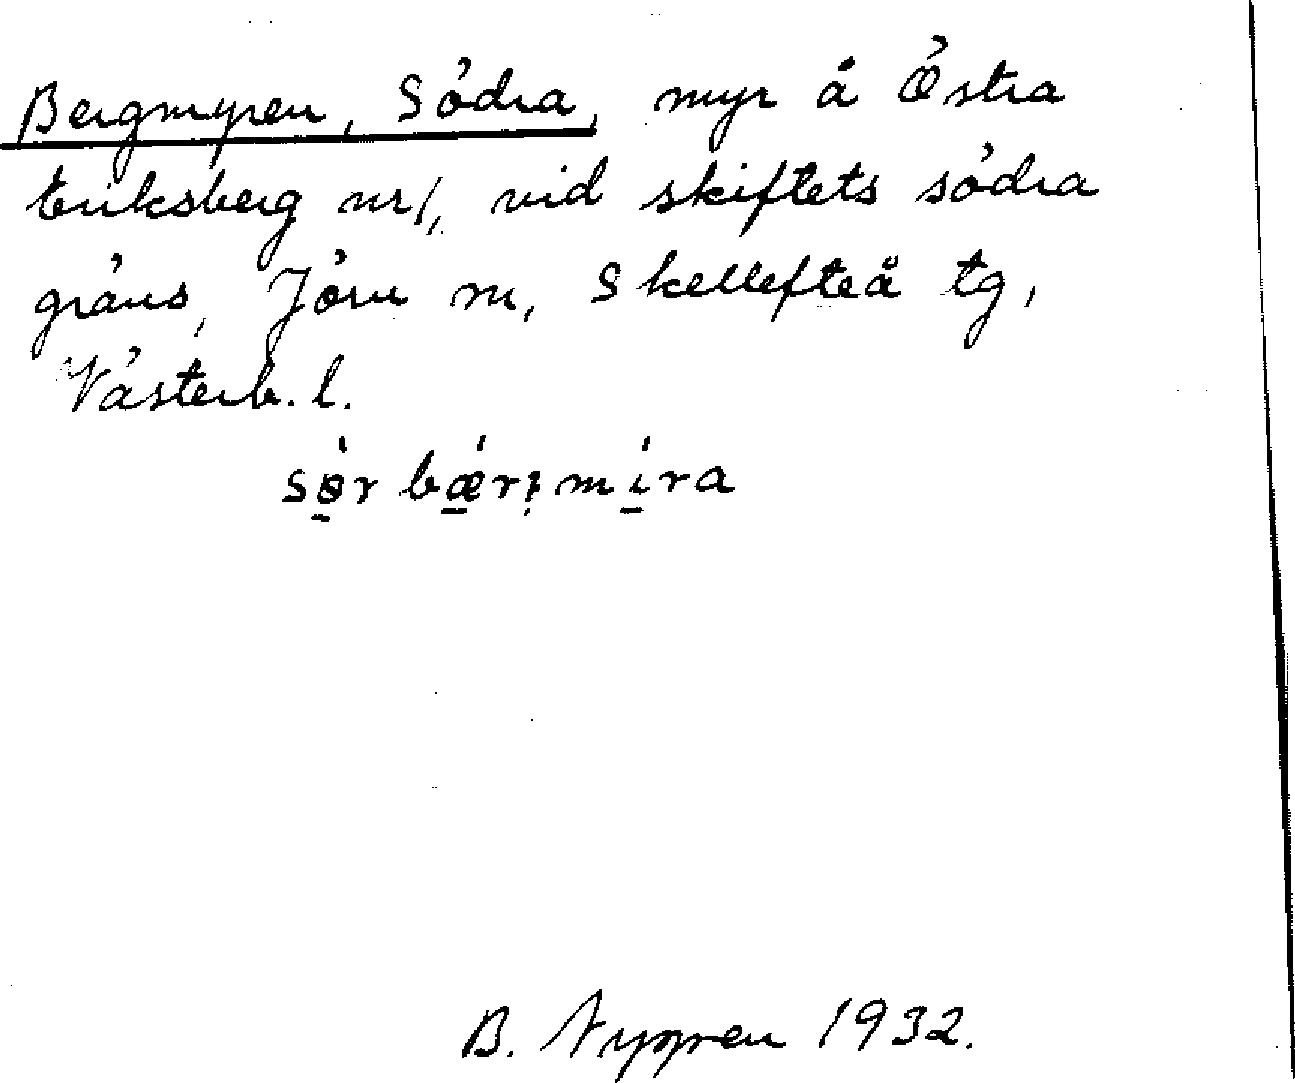 Bergmyren, Södra, myr å Östra
Eriksberg nr 1, vid skiftets södra
gräns, Jörn sn, Skellefteå tg,
Västerb. l.
sø̱̀r bæ̱̀rjmì̱ra
B. Nygren 1932.